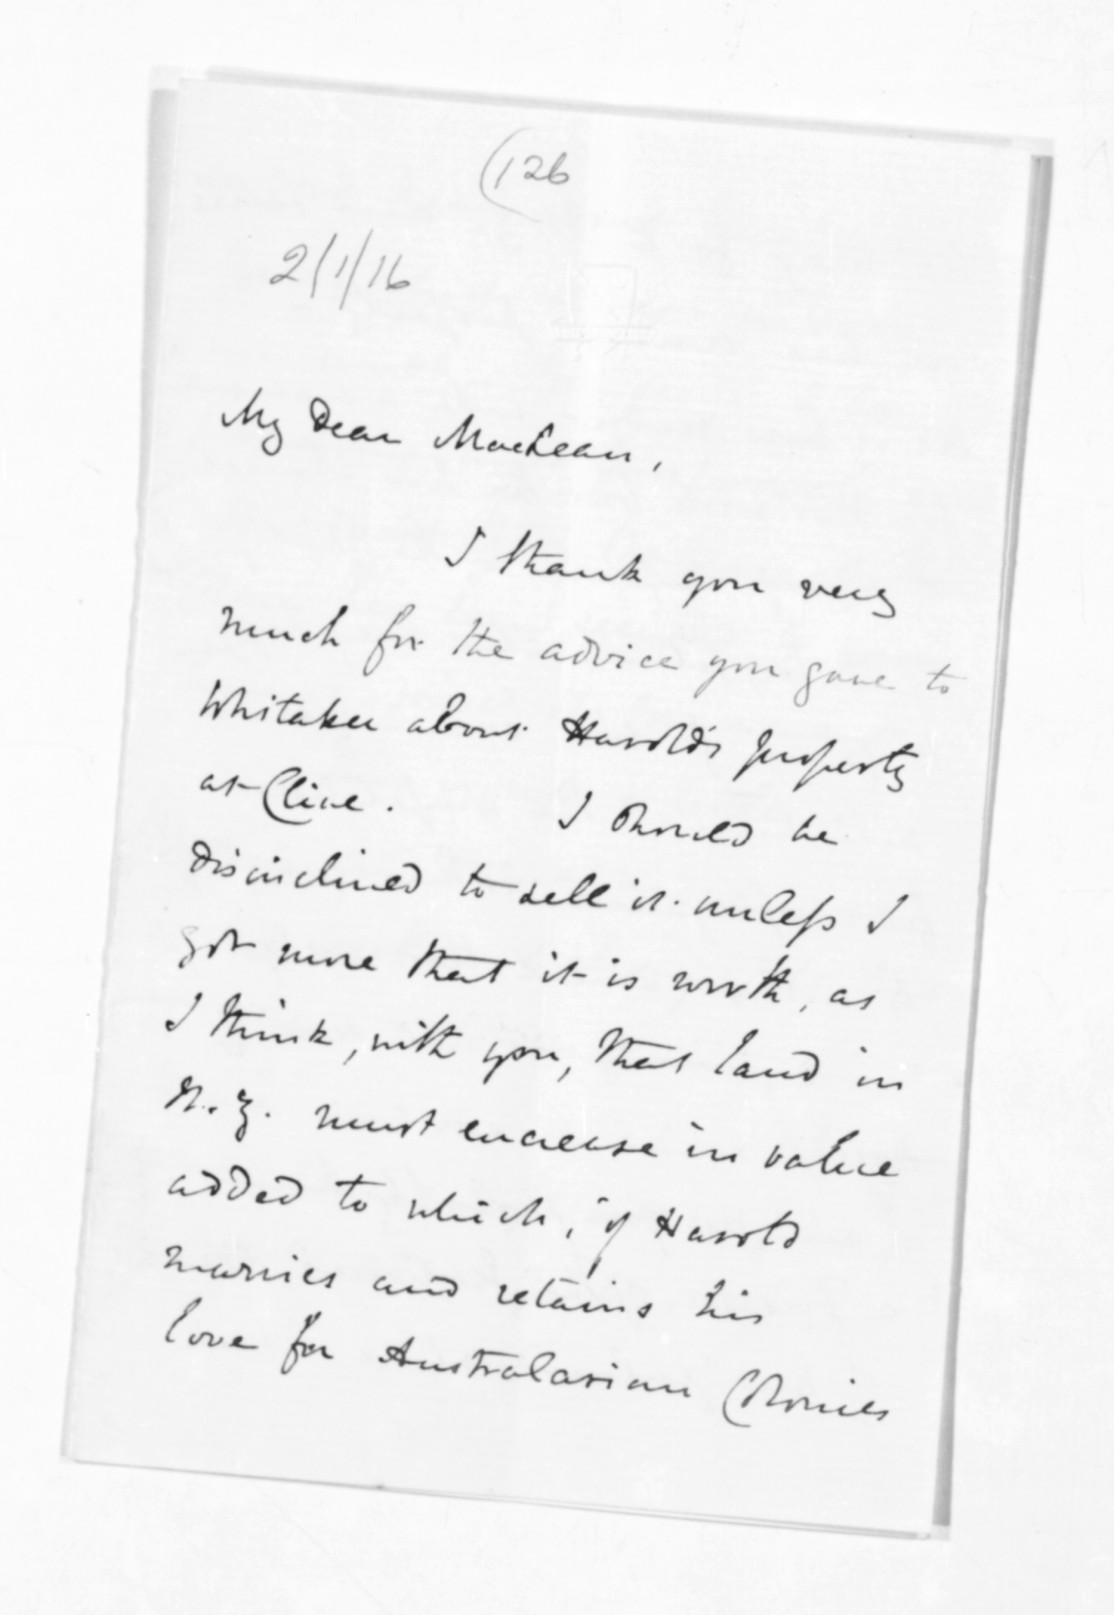 (126
2/1/16
My Dear MacLean,
I thank you very
much for the advice you gave to
Whitaker about Harold's property
at Clive. I should be
disinclined to sell it unless I
got more that it is worth, as
I think, with you, that land in
N.Z. must encrease in value
added to which, if Harold
marries and retains his
love for Australasian Colonies